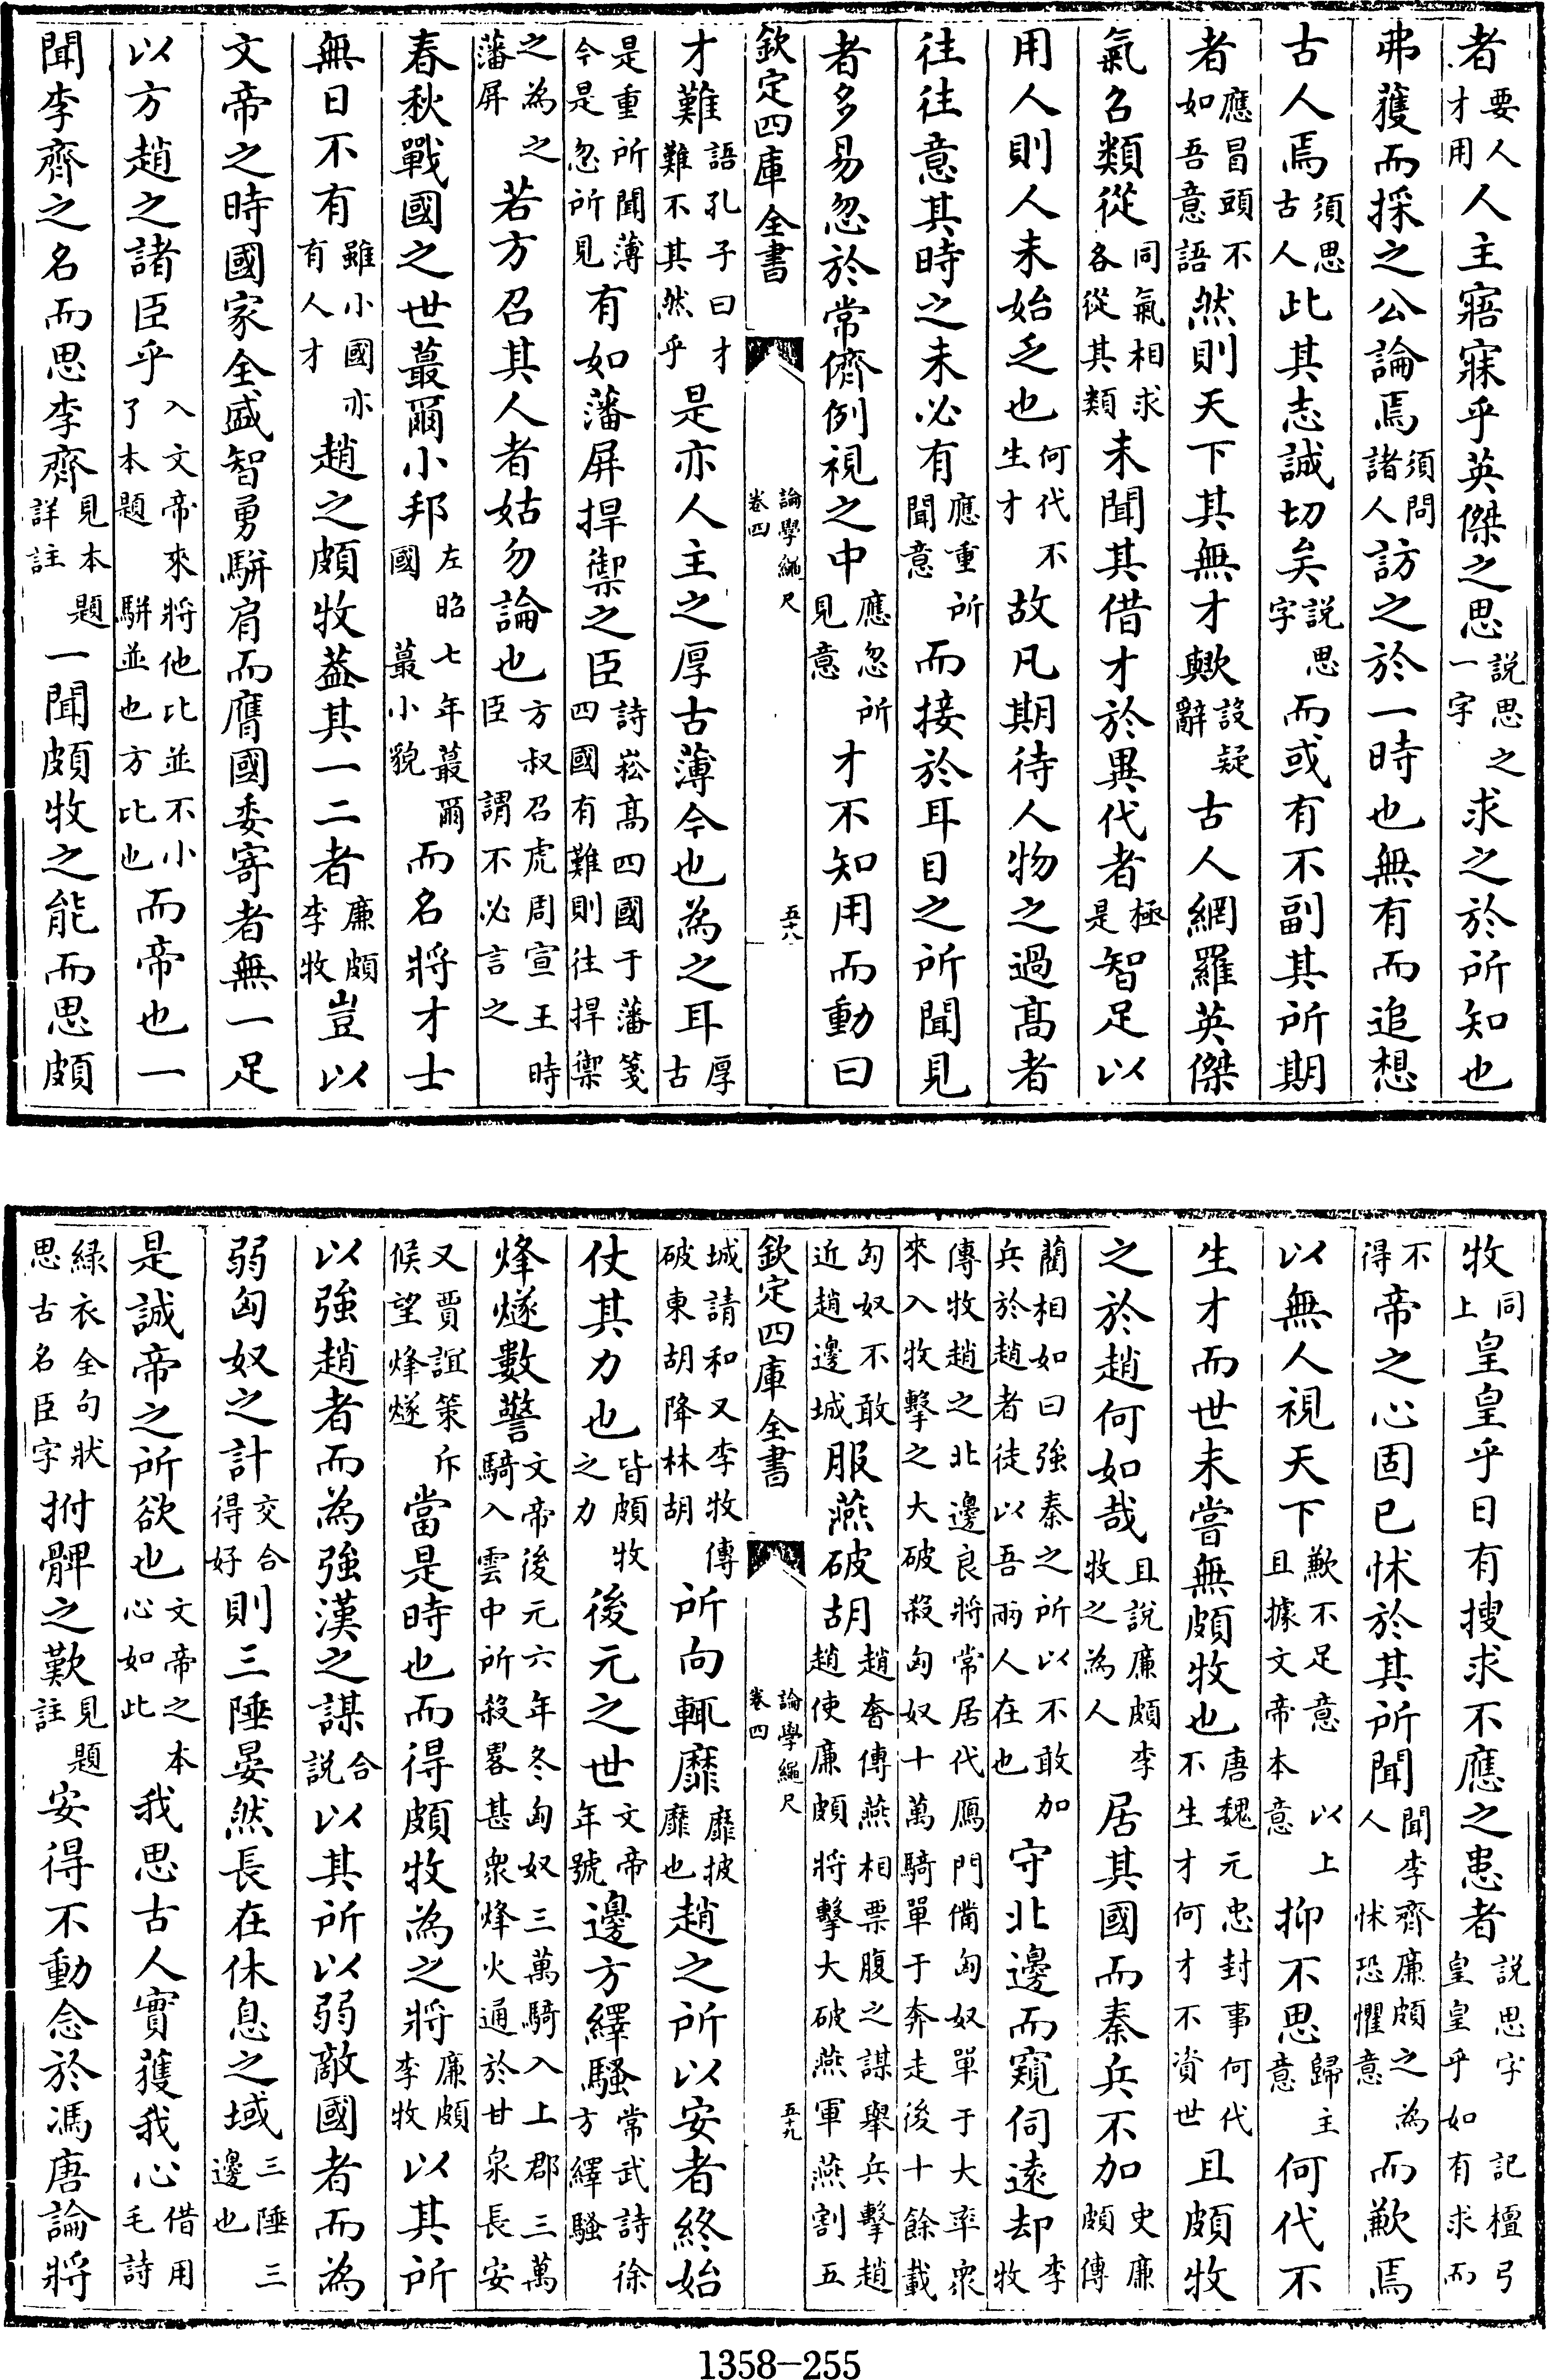 者要人才用人主寤寐乎英傑之思說思之一字求之於所知也
弗獲而採之公論焉須問諸人訪之於一時也無有而追想
古人焉須思古人此其志誠切矣說思字而或有不副其所期
者應冒頭不如吾意語然則天下其無才歟設疑辭古人網羅英傑
氣名類從同氣相求各從其類未聞其借才於異代者極是智足以
用人則人未始乏也何代不生才故凡期待人物之過高者
往往意其時之未必有應重所聞意而接於耳目之所聞見
者多易忽於常儕例視之中應忽所見意才不知用而動曰
欽定四庫全書 論學繩尺 卷四 五十八
才難語孔子曰才難不其然乎是亦人主之厚古薄今也為之耳厚古
是重所聞薄今是忽所見有如藩屏捍禦之臣詩崧高四國于藩箋四國有難則往捍禦
之為之藩屏若方召其人者姑勿論也方叔召虎周宣王時臣謂不必言之
春秋戰國之世蕞爾小邦左昭七年蕞爾國蕞小貌而名將才士
無日不有雖小國亦有人才趙之頗牧蓋其一二者廉頗李牧豈以
文帝之時國家全盛智勇駢肩而膺國委寄者無一足
以方趙之諸臣乎入文帝來將他比並不小了本題駢並也方比也而帝也一
聞李齊之名而思李齊見本題詳註一聞頗牧之能而思頗
牧同上皇皇乎日有搜求不應之患者說思字記檀弓皇皇乎如有求而
不得帝之心固已怵於其所聞聞李齊廉頗之為人怵恐懼意而歉焉
以無人視天下歉不足意以上且據文帝本意抑不思歸主意何代不
生才而世未嘗無頗牧也唐魏元忠封事何代不生才何才不資世且頗牧
之於趙何如哉且說廉頗李牧之為人居其國而秦兵不加史廉頗傳
藺相如曰強秦之所以不敢加兵於趙者徒以吾兩人在也守北邊而窺伺遠却李牧
傳牧趙之北邊良將常居代鴈門備匈奴單于大率眾來入牧擊之大破殺匈奴十萬騎單于奔走後十餘載
匈奴不敢近趙邊城服燕破胡趙奢傳燕相票腹之謀舉兵擊趙趙使廉頗將擊大破燕軍燕割五
欽定四庫全書 論學繩尺 卷四 五十九
城請和又李牧傳破東胡降林胡所向輒靡靡披靡也趙之所以安者終始
仗其力也皆頗牧之力後元之世文帝年號邊方繹騷常武詩徐方繹騷
烽燧數警文帝後元六年冬匈奴三萬騎入上郡三萬騎入雲中所殺畧甚衆烽火通於甘泉長安
又賈誼策斥候望烽燧當是時也而得頗牧為之將廉頗李牧以其所
以強趙者而為強漢之謀合說以其所以弱敵國者而為
弱匈奴之計交合得好則三陲晏然長在休息之域三陲三邊也
是誠帝之所欲也文帝之本心如此我思古人實獲我心借用毛詩
綠衣全句狀思古名臣字拊髀之歎見題註安得不動念於馮唐論將
1358-255